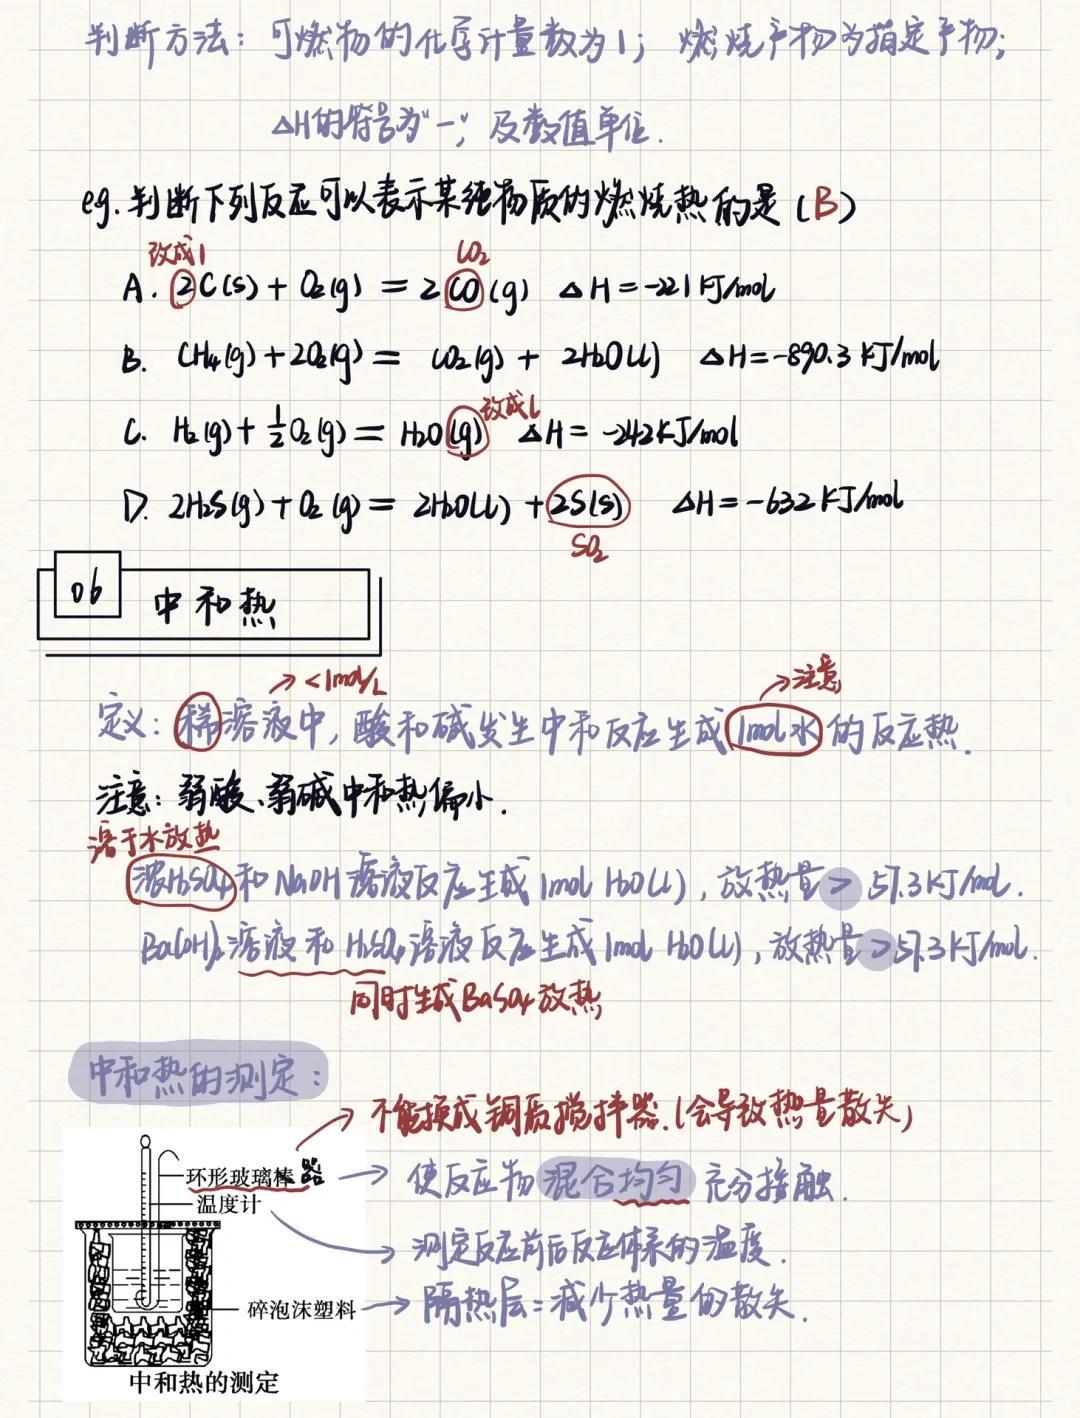 判断方法：可燃物的化学计量数为1；燃烧产物为指定产物；
△H的符号为“－”；及数值单位.
eg.判断下列反应可以表示某纯物质的燃烧热的是（B）
改成1
CO₂
A. 2C(s)+O₂(g)=2CO(g) △H=-221KJ/mol
B. CH₄(g)+2O₂(g)= CO₂(g)+ 2H₂O(l) △H=-890.3KJ/mol
改成l
C. H₂(g)+½O₂(g)=H₂O(g) △H=-242KJ/mol
D. 2H₂S(g)+O₂(g)=2H₂O(l)+2S(s) △H=-632KJ/mol
SO₂
06 中和热
→<1mol/L
→注意
定义：稀溶液中，酸和碱发生中和反应生成1mol水的反应热.
注意：弱酸、弱碱中和热偏小.
溶于水放热
浓H₂SO₄和NaOH溶液反应生成1mol H₂O(l)，放热量>57.3KJ/mol.
Ba(OH)₂溶液和H₂SO₄溶液反应生成1mol H₂O(l)，放热量>57.3KJ/mol.
同时生成BaSO₄放热
中和热的测定：
→不能换成铜质搅拌器.(会导致热量散失)
环形玻璃棒器
→使反应物混合均匀充分接触.
温度计
→测定反应前后反应体系的温度.
碎泡沫塑料
→隔热层：减少热量的散失.
中和热的测定